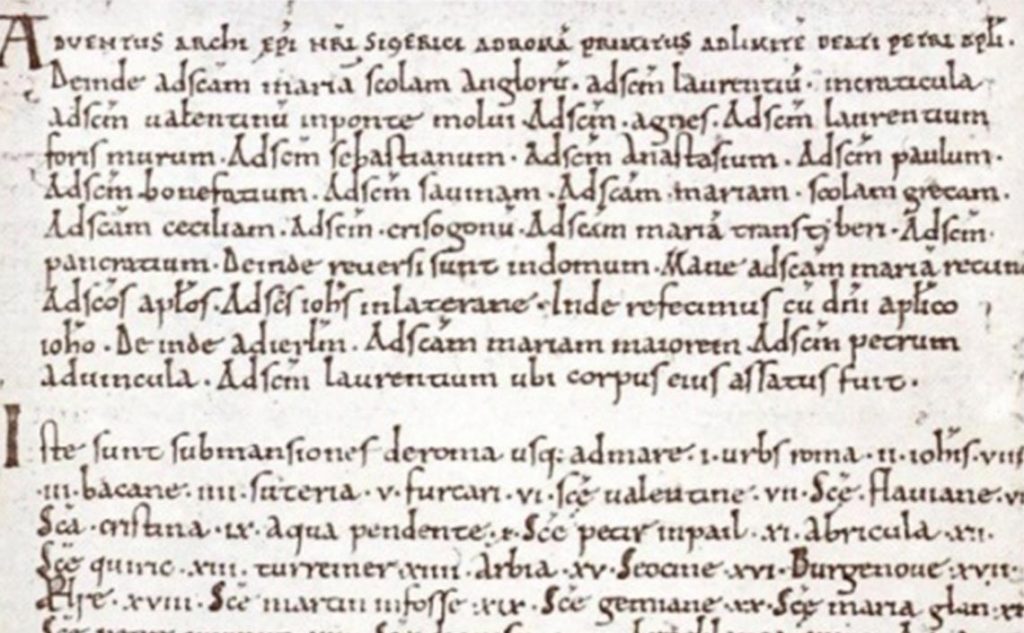 ADVENTUS ARCHI EP̄I NR̄I SIGERICI ADROMĀ PRIMITUS ADLIMITĒ BEATI PETRI APL̄I.
Deinde adscām mariā scolam Anglorū. adscm̄ laurentiū. incraticula
adscm̄ ualentinū inponte molui Adscm̄. agnes. Adscm̄ laurentium
foris murum. Adscm̄ sebastianum. Adscm̄ anastasium. Adscm̄ paulum.
Adscm̄ bonefatium. Adscm̄ sauinam. Adscām. mariam. scolam grecam.
Adscām ceciliam. Adscm̄. crisogonū. Adscām mariā transtyberi. Adscm̄.
pancratium. Deinde reuersi sunt indomum. Mane adscām mariā
Adscōs apl̄os. Adscs̄ ioh̄s inlaterane. Inde refecimus cū dn̄i apl̄ico
ioh̄o. Deinde adierlm̄. Adscām mariam maiorem Adscm̄ petrum
aduincula. Adscm̄ laurentium ubi corpus eius assatus fuit.
Iste sunt submansiones deroma usq; admare. i. urbs roma. ii. ioh̄is. viiii
.iii. bacane. iiii. suteria. v. furcari. vi. Scē ualentine. vii. Scē. flauiane.
Scā. cristina. ix. aqua pendente. x. Scē petir inpail. xi. abricula. xii.
Scē quiric. xiii. turreiner. xiiii. arbia. xv. Seocine. xvi. Burgenoue. xvii.
Ælse. xviii. Scē martin infosse. xix. Scē gemiane. xx. Scē maria glan.